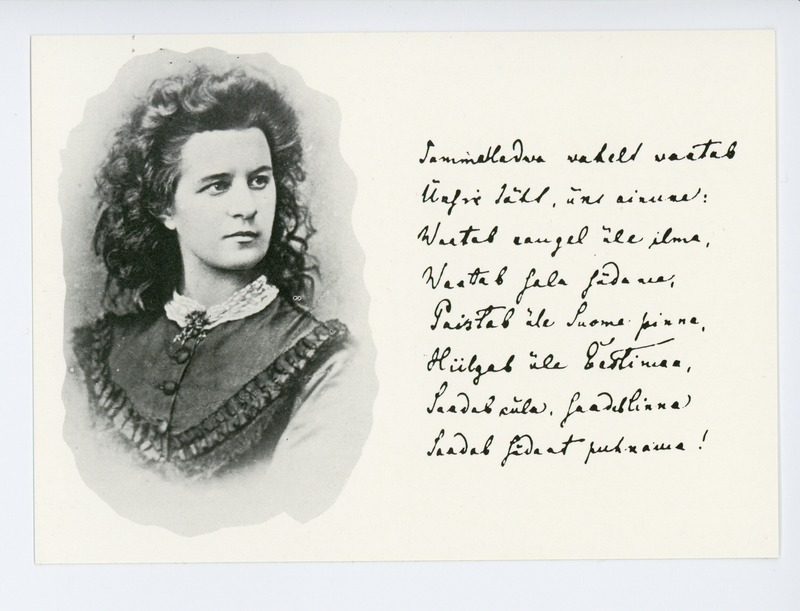 Sammalladwa wahelt waatab
Üksik täht, üks ainuke:
Waatab kaugel üle ilma,
Waatab hala südame,
Paistab üle Suome pinna,
Hiilgab üle Eestimaa,
Saadab küla, saadab linna
Saadab südant puhkama!